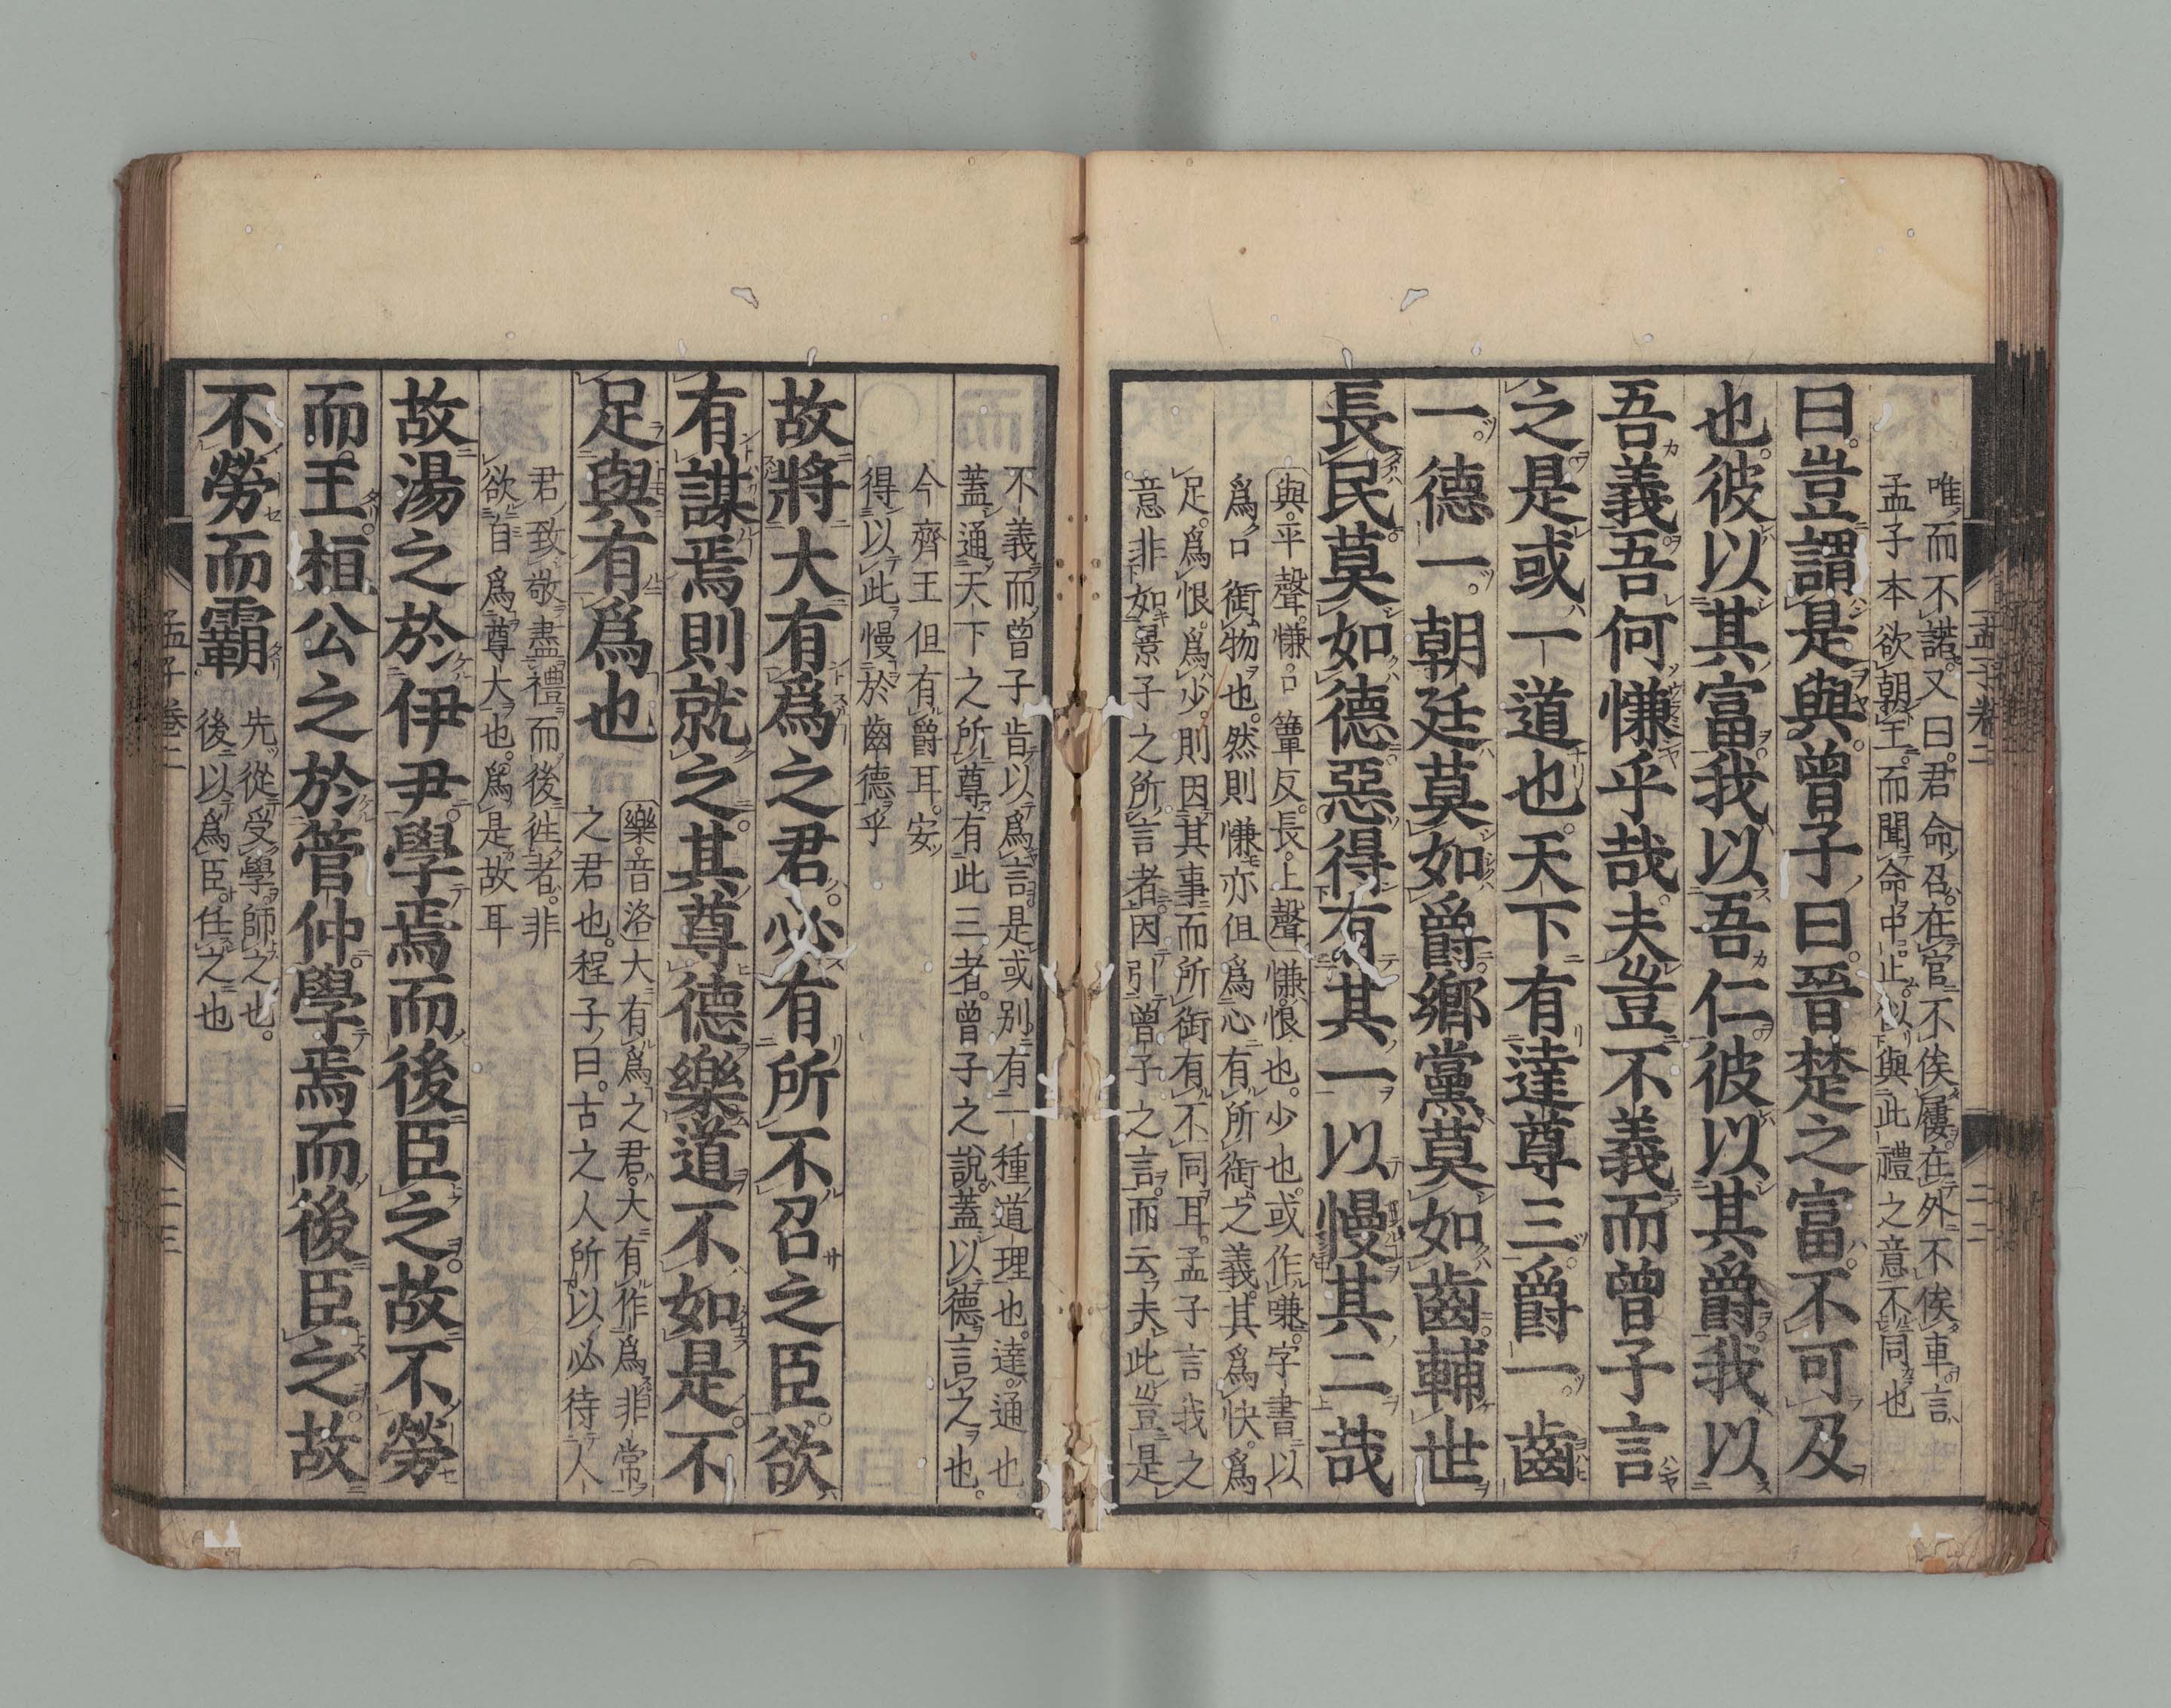 唯而不諾又曰君命召在官不俟屨在外不俟車言
孟子本欲朝王而聞命中止似與此禮之意不同也
曰豈謂是與曾子曰晉楚之富不可及
也彼以其富我以吾仁彼以其爵我以
吾義吾何慊乎哉夫豈不義而曾子言
之是或一道也天下有達尊三爵一齒
一德一朝廷莫如爵鄉黨莫如齒輔世
長民莫如德惡得有其一以慢其二哉
與平聲慊口簟反長上聲慊恨也少也或作嗛字書以
爲口銜物也然則慊亦但爲心有所銜之義其爲快爲
足爲恨爲少則因其事而所銜有不同耳孟子言我之
意非如景子之所言者因引曾子之言而云夫此豈是
孟子卷二
二二
不義而曾子肯以爲言是或别有一種道理也達通也
蓋通天下之所尊有此三者曾子之說蓋以德言之也
今齊王但有爵耳安
得以此慢於齒德乎
故將大有爲之君必有所不召之臣欲
有謀焉則就之其尊德樂道不如是不
足與有爲也
樂音洛大有爲之君大有作爲非常
之君也程子曰古之人所以必待人
君致敬盡禮而後徃者非
欲自爲尊大也爲是故耳
故湯之於伊尹學焉而後臣之故不勞
而王桓公之於管仲學焉而後臣之故
不勞而霸
先從受學師之也
後以爲臣任之也
孟子卷二
二三